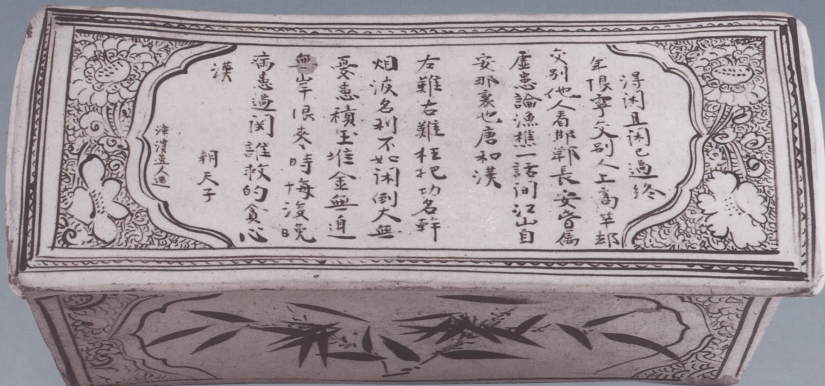 得闲且闲已過终
年限寧交别人上高竿却
交别他人看邯鄲長安皆属
虚患論漁樵一話间江山自
安那裏也唐和漢
左難右難枉把功名幹
烟波名利不如闲倒大無
憂患積玉堆金無边
無岸限来時悔後晚
病患過関誰救的貪心
漢
朝天子
漳濱逸人造